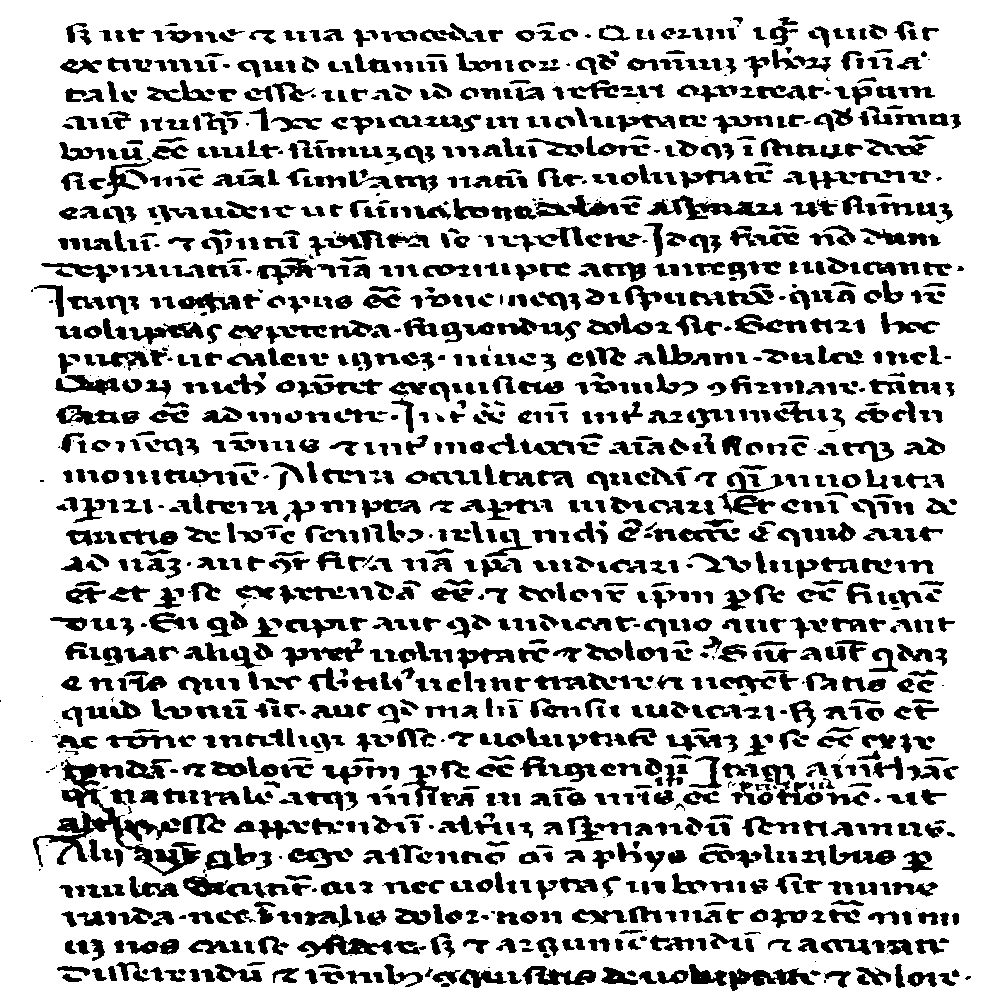 sꝫ ut rōne ⁊ uia procedat orō. Querim' igr̄ quid sit
extremū. quid ultimū bonoꝝ. qd̄ omniuꝫ phōꝝ sn̄ia
tale debet esse. ut ad id omīa referri oporteat. ipsum
aut̄ nusꝗ̄. Hoc epicurus in uoluptate ponit. qd̄ sūmuꝫ
bonū ēē uult. sūmuꝫqꝫ malū dolorē. idqꝫ īstituit docē
sic. Omē aīal simul atqꝫ natū sit. uoluptatē appetere.
eaqꝫ gaudere ut sūmo bono dolorē aspernari ut sūmuꝫ
malū. ⁊ qntū possit a se repellere. Idqꝫ facē nōdum
deprauatū. ipā nā incorrupte atqꝫ integre iudicante.
Itaqꝫ negat opus ēē rōne neqꝫ disputatōe. quā ob rē
uoluptas expetenda. fugiendus dolor sit. Sentiri hoc
putat. ut calere ignez. niuez esse albam. dulce mel.
Quoꝝ nich' oportet exquisitis rōnibꝫ ꝯfirmare. tātuꝫ
satis ēē admonere. Int' ēē enī int' argumētuꝫ ꝯclu
sionēqꝫ rōnis ⁊ int' mediocrē aīaduersionē atqꝫ ad
monitionē. Altera occultata quedā ⁊ qī inuoluta
apiri. altera prompta ⁊ apta iudicari. Et enī qm̄ de
tractis de hoīe sensibꝫ reliqi nichil ē. necē ē quid aut
ad nāꝫ. aut ꝯtra sit a nā ipā iudicari. Voluptatem
et̄ et ꝑ se expetendā ēē. ⁊ dolorē ipm̄ ꝑ se ēē fugiē
duꝫ. En qd̄ ꝑcipit aut qd̄ iudicat. quo aut petat aut
fugiat aliqd̄ pret' uoluptatē ⁊ dolorē. Sūt aut̄ qdaꝫ
e nr̄is qui hec subtili' uelint tradere ⁊ negēt satis ēē
quid bonū sit. aut qd̄ malū sensu iudicari. sꝫ aīo et̄
ac rōne intelligi posse. ⁊ uoluptatē ipaꝫ ꝑ se ēē expe
tendā. ⁊ dolorē ipm̄ ꝑ se ēē fugiendū. Itaqꝫ aiūt hāc
qī naturalē atqꝫ insitā in aīs nr̄is ēē notionē. ut
alterū esse appetendū. alt'uꝫ aspernandū sentiamus.
Alij aut̄ qbꝫ. ego assentio cū a phys cōpluribus ꝑ
multa dicūt̄. cur nec uoluptas in bonis sit nume
randa. nec ī malis dolor. non existimāt oportē nimi
uꝫ nos cause ꝯfidere. sꝫ ⁊ argumētandū ⁊ accurate
disserendū ⁊ rōnibꝫ ꝯquisitis de uoluptate ⁊ dolore.